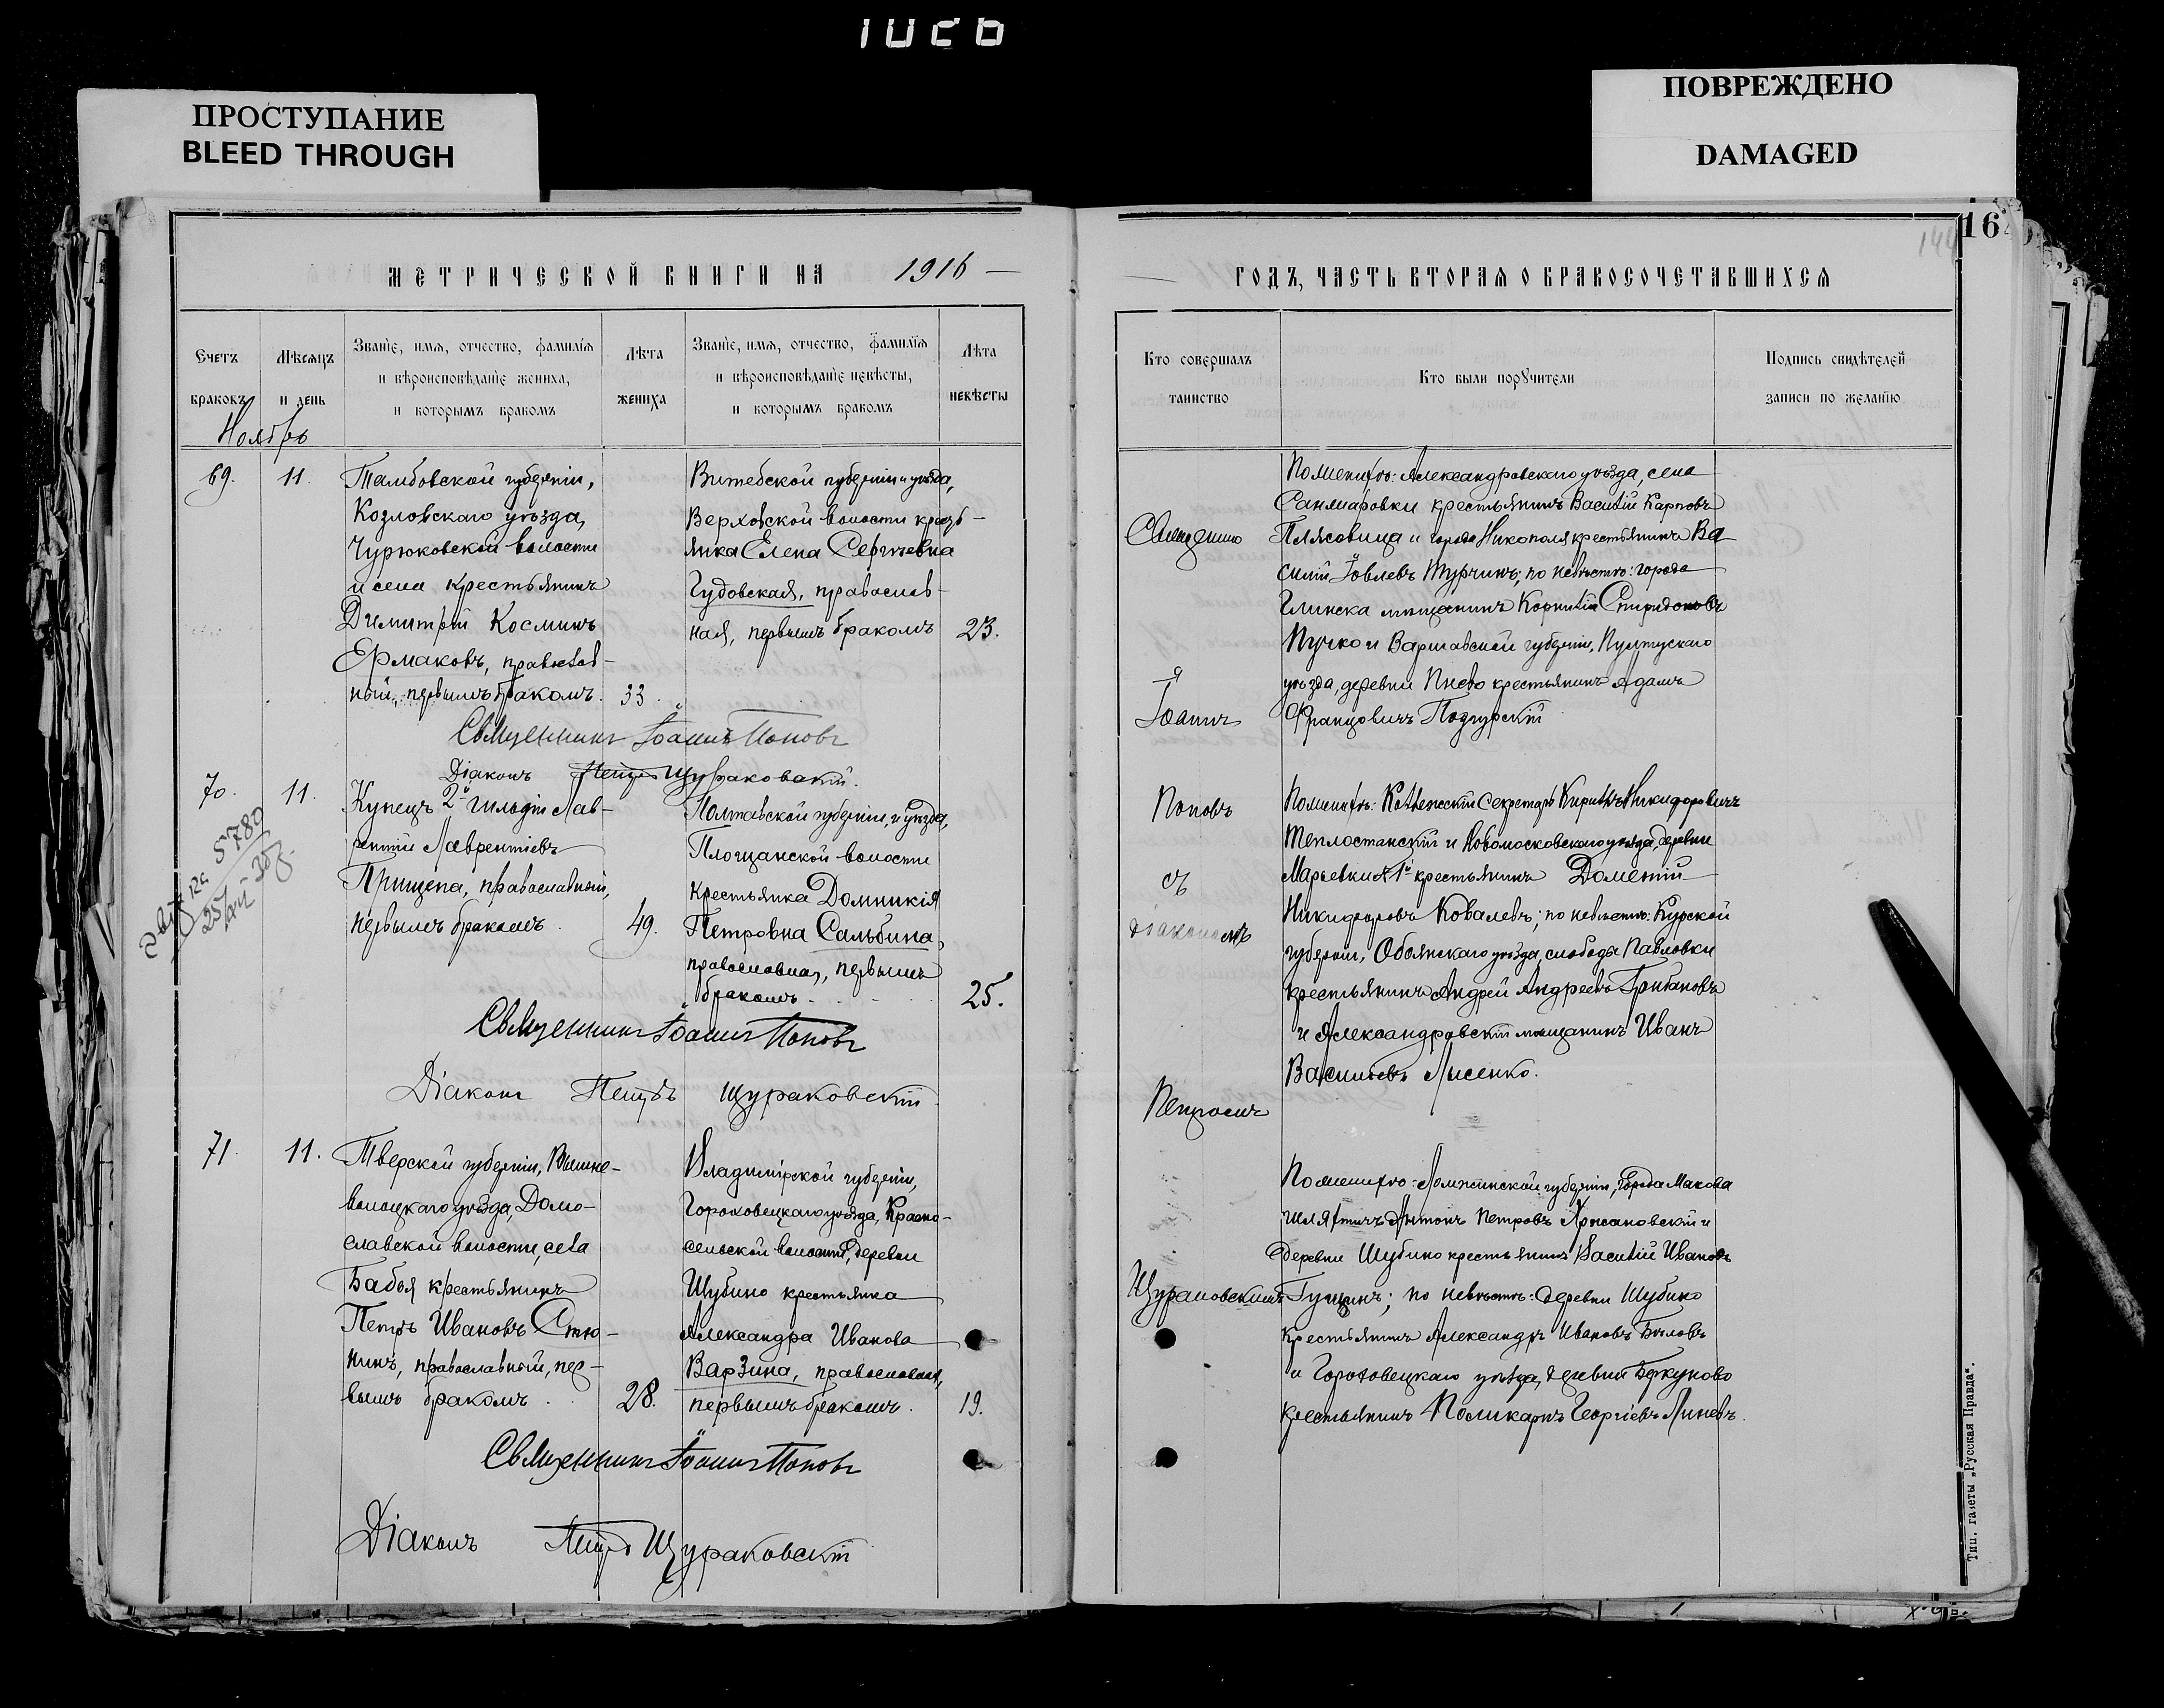 1026
ПРОСТУПАНИЕ
BLEED THROUGH
ПОВРЕЖДЕНО
DAMAGED
МЕТРИЧЕСКОЙ КНИГИ НА 1916
Счетъ браковъ
Мѣсяцъ и день
Званїе, имя, отчество, фамилїя
и вѣроисповѣданїе жениха,
и которымъ бракомъ
Лѣта
жениха
Званїе, имя, отчество, фамилїя
и вѣроисповѣданїе невѣсты,
и которымъ бракомъ
Лѣта
невѣсты
Ноябрь
69. 11.
Тамбовской губерніи,
Козловскаго уѣзда,
Чурюковской волости
и села крестьянинъ
Димитрій Косминъ
Ермаковъ, православ-
ный, первымъ бракомъ. 33.
Витебской губерніи и уѣзда,
Верховской волости кресть-
янка Елена Сергѣевна
Гудовская, православ-
ная, первымъ бракомъ 23.
Священникъ Іоаннъ Поповъ
Діаконъ Петръ Щураковскій.
70. 11.
Купецъ 2й гильдіи Лав-
рентій Лаврентіевъ
Прищепа, православный,
первымъ бракомъ. 49.
Полтавской губерніи, и уѣзда,
Площанской волости
крестьянка Домникія
Петровна Сальбина,
православная, первымъ
бракомъ 25.
Священникъ Іоаннъ Поповъ
Діаконъ Петръ Щураковскій
71. 11.
Тверской губерніи, Вышне-
волоцкаго уѣзда, Домо-
славской волости, села
Бабья крестьянинъ
Петръ Ивановъ Стю-
нинъ, православный, пер-
вымъ бракомъ. 28.
Владимірской губерніи,
Гороховецкаго уѣзда, Красно-
сельской волости, деревни
Шубино крестьянка
Александра Иванова
Варзина, православная,
первымъ бракомъ. 19.
Священникъ Іоаннъ Поповъ
Діаконъ Петръ Щураковскій
ГОДЪ, ЧАСТЬ ВТОРАЯ О БРАКОСОЧЕТАВШИХСЯ
144
Кто совершалъ
таинство
Кто были порꙋчители
Подпись свидѣтелей
записи по желанїю
Священникъ
Іоаннъ
Поповъ
съ
діакономъ
Петромъ
Щураковскимъ
По жениху: Александровскаго уѣзда, села
крестьянинъ Василій Карповъ
Плясовица и города Никополя крестьянинъ Ва
силій Іовлевъ Турчинъ; по невѣстѣ: города
Глинска мѣщанинъ Корнилій Спиридоновъ
Пучко и Варшавской губерніи, Пултускаго
уѣзда, деревни Пнево крестьянинъ Адамъ
Францовичъ Подгурскій
По жениху: Коллежскій Секретарь Кириллъ Никифоровичъ
Теплостанскій и Новомосковскаго уѣзда, деревни
Марьевки № 1й крестьянинъ Дометій
Никифоровъ Ковалевъ; по невѣстѣ: Курской
губерніи, Обоянскаго уѣзда, слободы Павловки
крестьянинъ Андрей Андреевъ Грибановъ
и Александровскій мѣщанинъ Иванъ
Васильевъ Лысенко.
По жениху: Ломжинской губерніи, города Макова
шляхтичъ Антонъ Петровъ Хржановскій и
деревни Шубино крестьянинъ Василій Ивановъ
Гущинъ; по невѣстѣ: деревни Шубино
крестьянинъ Александръ Ивановъ Быловъ
и Гороховецкаго уѣзда, деревни Беркуново
крестьянинъ Поликарпъ Георгіевъ Линевъ.
Тип. газеты „Русская Правда“.